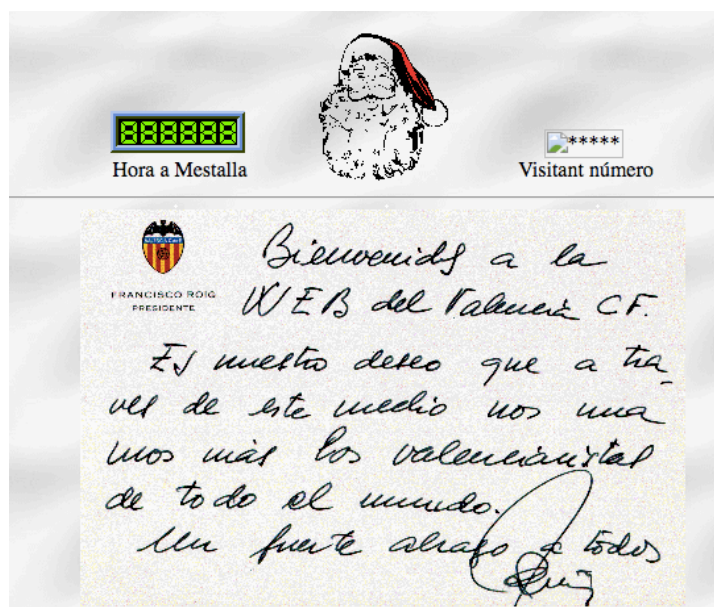 888888
*****
Hora a Mestalla
Visitant número
FRANCISCO ROIG
PRESIDENTE
Bienvenidos a la
WEB del Valencia CF.
Es nuestro deseo que a tra-
vés de este medio nos una
mos más los valencianistas
de todo el mundo.
Un fuerte abrazo a todos